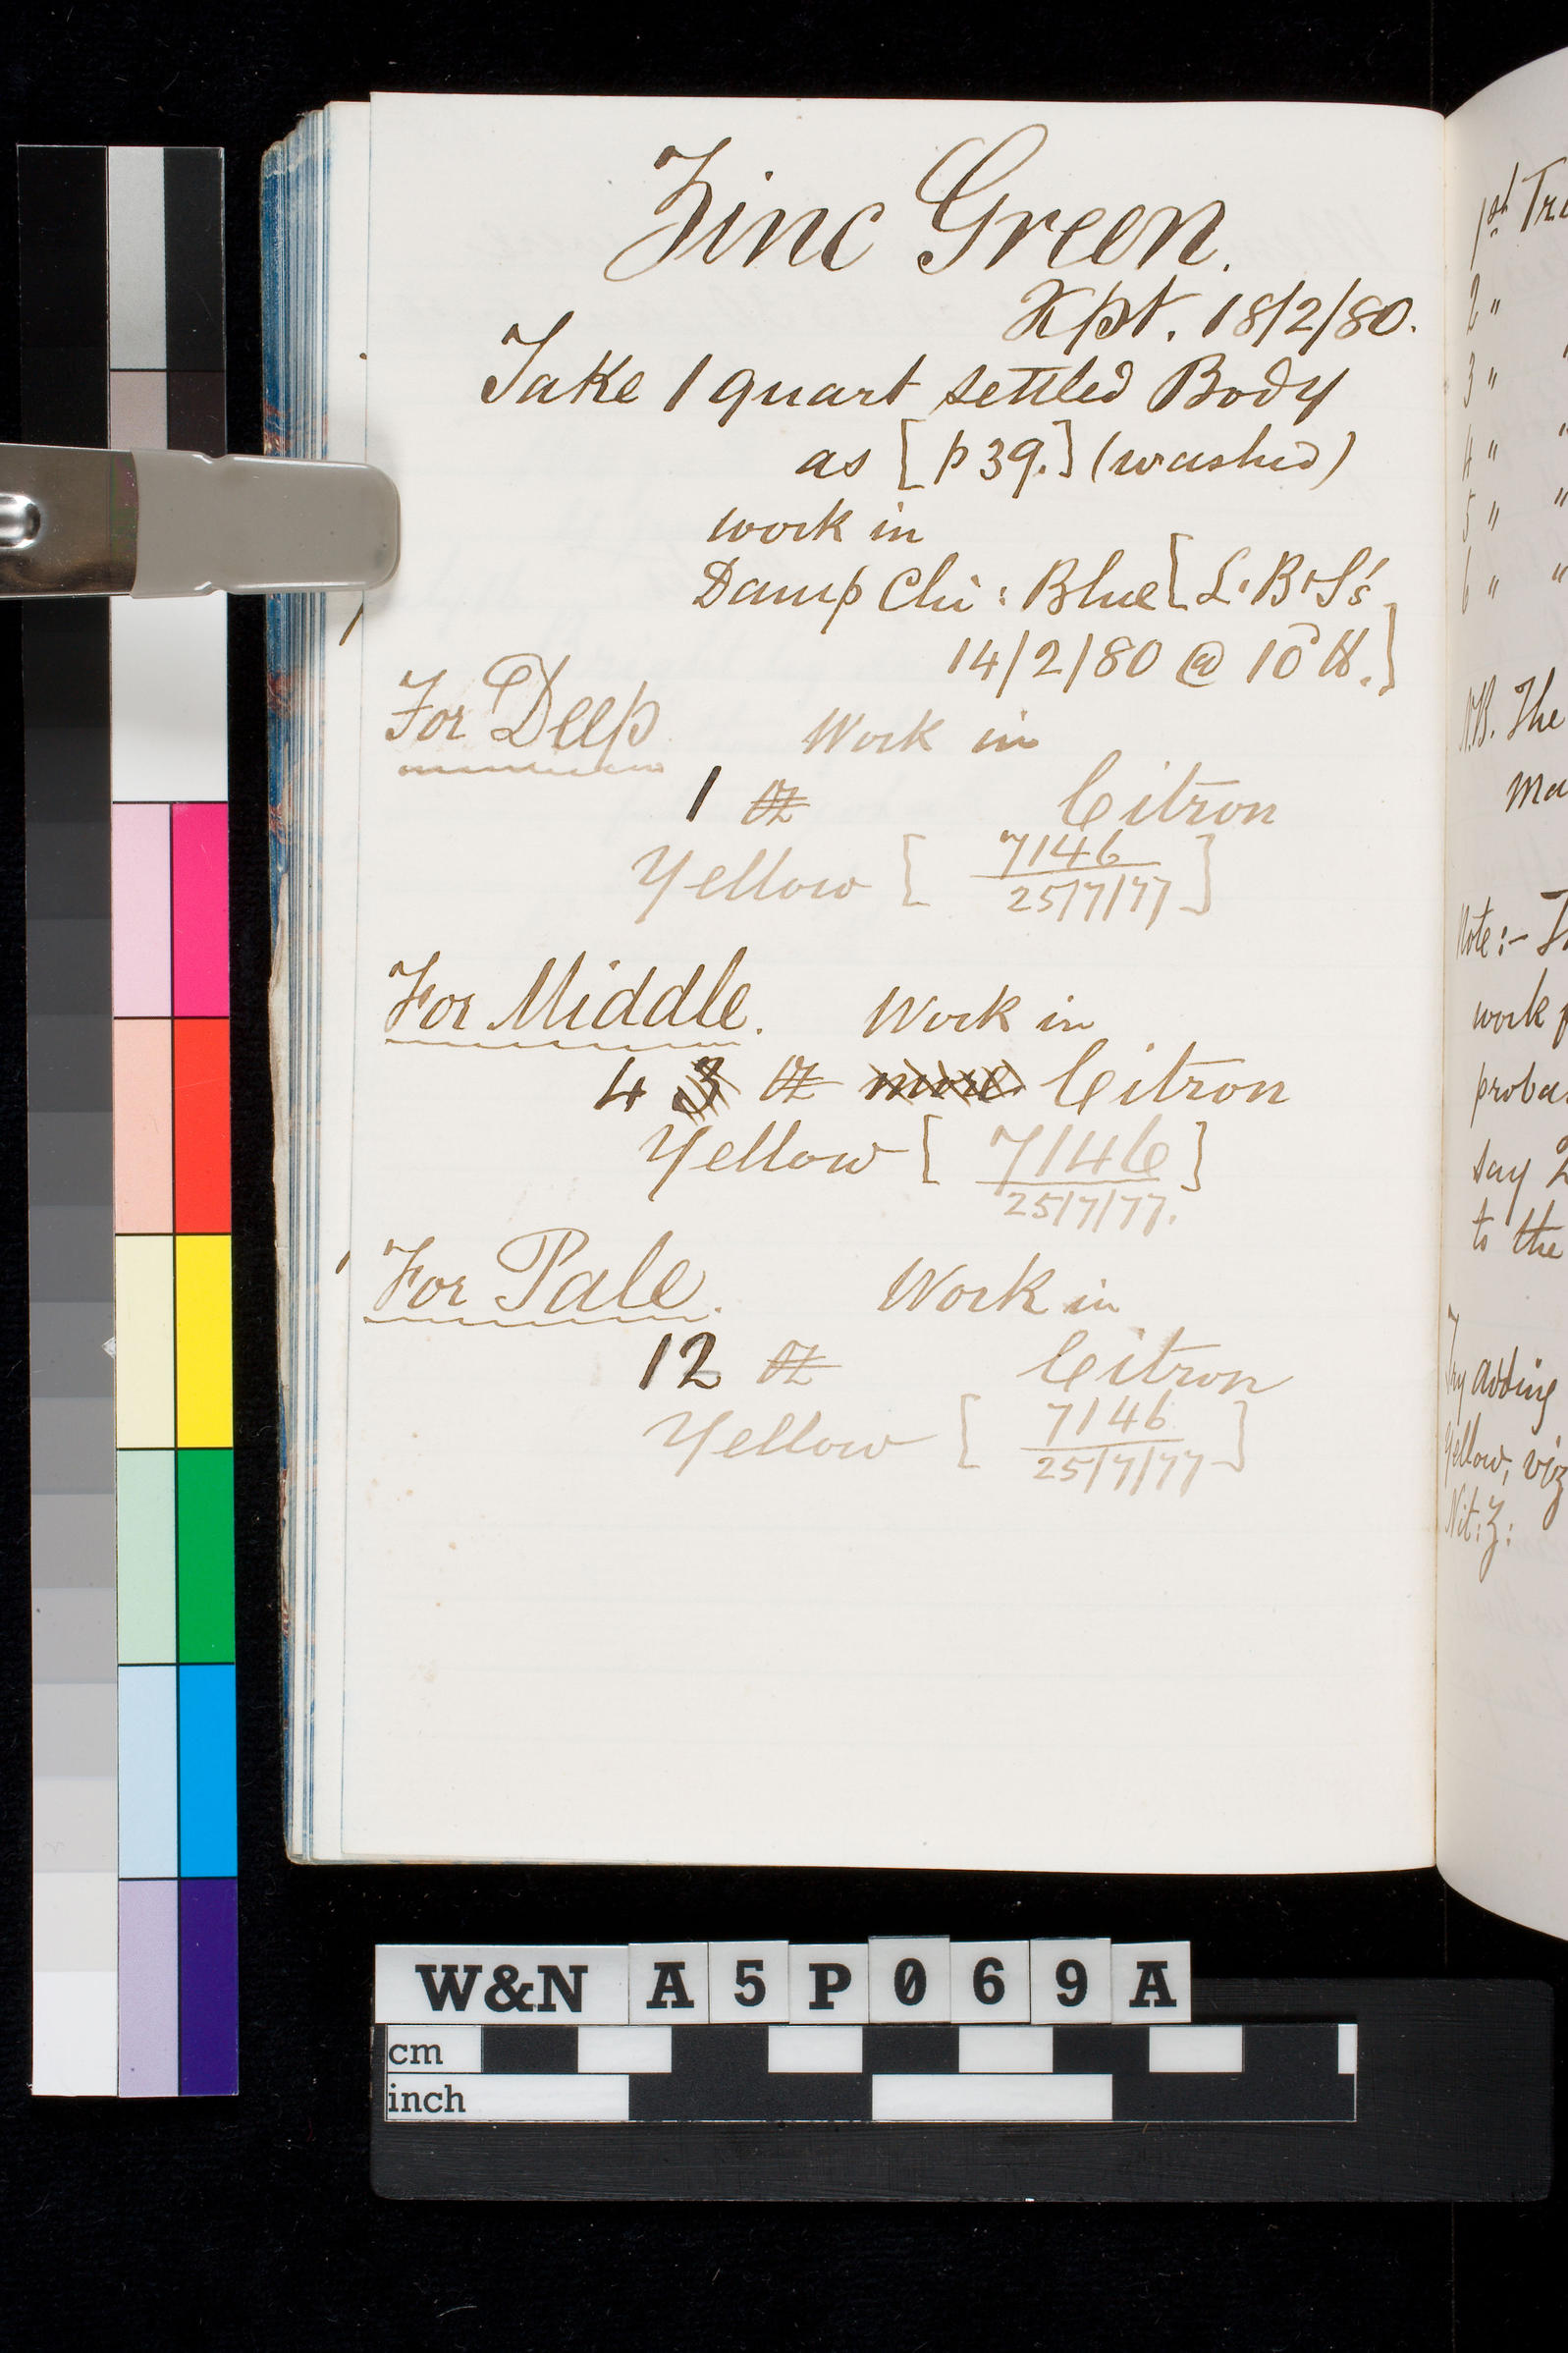 Zinc Green.
Xpt. 18/2/80.
Take 1 quart settled Body
as [p 39.] (washed)
work in
Damp Chi: Blue [L. B. & S's
14/2/80 @ 10d lb.]
For Deep Work in
1 oz Citron
Yellow [7146
25/7/77]
For Middle. Work in
4 3 oz more Citron
Yellow [7146
25/7/77.]
For Pale. Work in
12 oz Citron
Yellow [7146
25/7/77]
1st
2 "
3 "
4 "
5 "
6 "
N.B. The
Note:-
work
say
to the
Try adding
Yellow, viz
Nit: Z:
W&N A5P069A
cm
inch